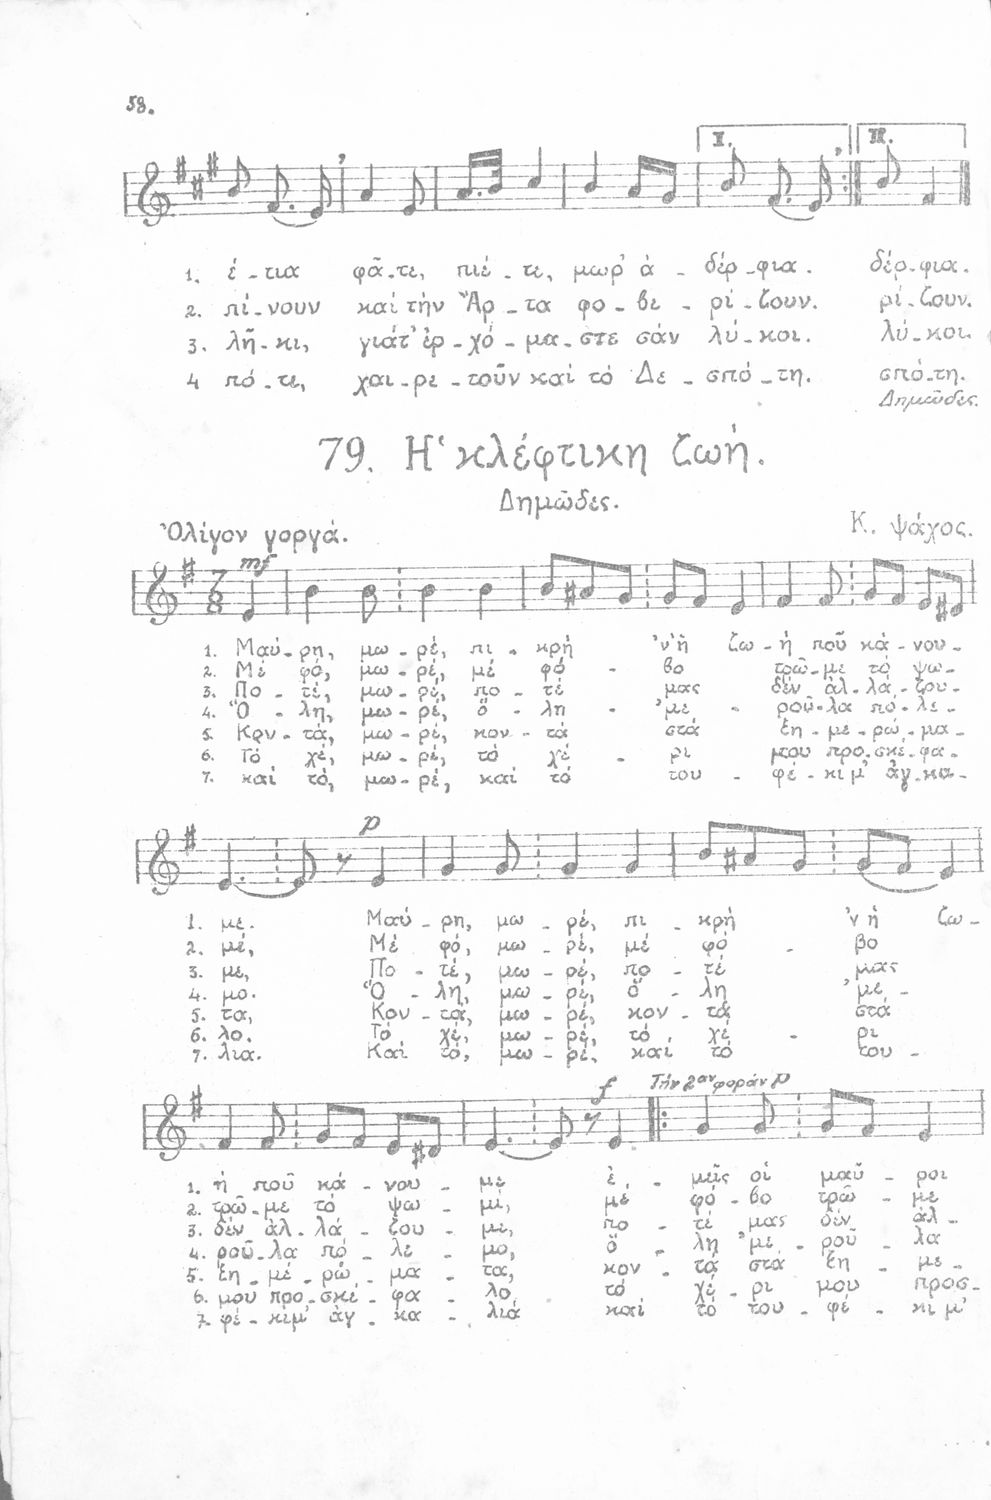 58.
I. II.
1. έ-τια φᾶ-τε, πιέ-τε, μωρ' ἀ-δέρ-φια. δέρ-φια.
2. πί-νουν καί τήν Ἄρ-τα φο-βε-ρί-ζουν. ρί-ζουν.
3. λῆ-κι, γιάτ' ἐρ-χό-μα-στε σάν λύ-κοι. λύ-κοι.
4 πό-τε, χαι-ρε-τοῦν καί τό Δε-σπό-τη. σπό-τη.
Δημῶδες.
79. Ἡ κλέφτικη ζωή.
Δημῶδες.
Ὀλίγον γοργά. Κ. Ψάχος.
mf
1. Μαύ-ρη, μω-ρέ, πι-κρή 'ν' ἡ ζω-ή ποῦ κά-νου-
2. Μέ φό, μω-ρέ, μέ φό-βο τρῶ-με τό ψω-
3. Πο-τέ, μω-ρέ, πο-τέ μας δέν ἀλ-λά-ζου-
4. Ὅ-λη, μω-ρέ, ὅ-λη 'με-ροῦ-λα πό-λε-
5. Κον-τά, μω-ρέ, κον-τά στά ξη-με-ρώ-μα-
6. Τό χέ, μω-ρέ, τό χέ-ρι μου προ-σκέ-φα-
7. καί τό, μω-ρέ, καί τό του-φέ-κι μ' ἀγ-κα-
p
1. με. Μαύ-ρη, μω-ρέ, πι-κρή 'ν ἡ ζω-
2. μί, Μέ φό, μω-ρέ, μέ φό-βο
3. με, Πο-τέ, μω-ρέ, πο-τέ μας
4. μο. Ὅ-λη, μω-ρέ, ὅ-λη 'με-
5. τα, Κον-τά, μω-ρέ, κον-τά στά
6. λο. Τό χέ, μω-ρέ, τό χέ-ρι
7. λιά. Καί τό, μω-ρέ, καί τό του-
f Τήν 2αν φοράν p
1. ἡ ποῦ κά-νου-με ἐ-μεῖς οἱ μαῦ-ροι
2. τρῶ-με τό ψω-μί, μέ φό-βο τρῶ-με
3. δέν ἀλ-λά-ζου-με, πο-τέ μας δέν ἀλ-
4. ροῦ-λα πό-λε-μο, ὅ-λη 'με-ροῦ-λα
5. ξη-μέ-ρώ-μα-τα, κον-τά στά ξη-με-
6. μου προ-σκέ-φα-λο. τό χέ-ρι μου προσ-
7. φέ-κι μ' ἀγ-κα-λιά καί τό του-φέ-κι μ'